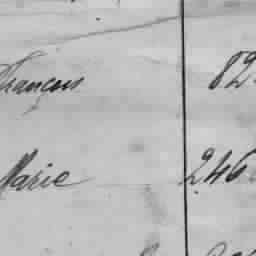 François 82
Marie 246